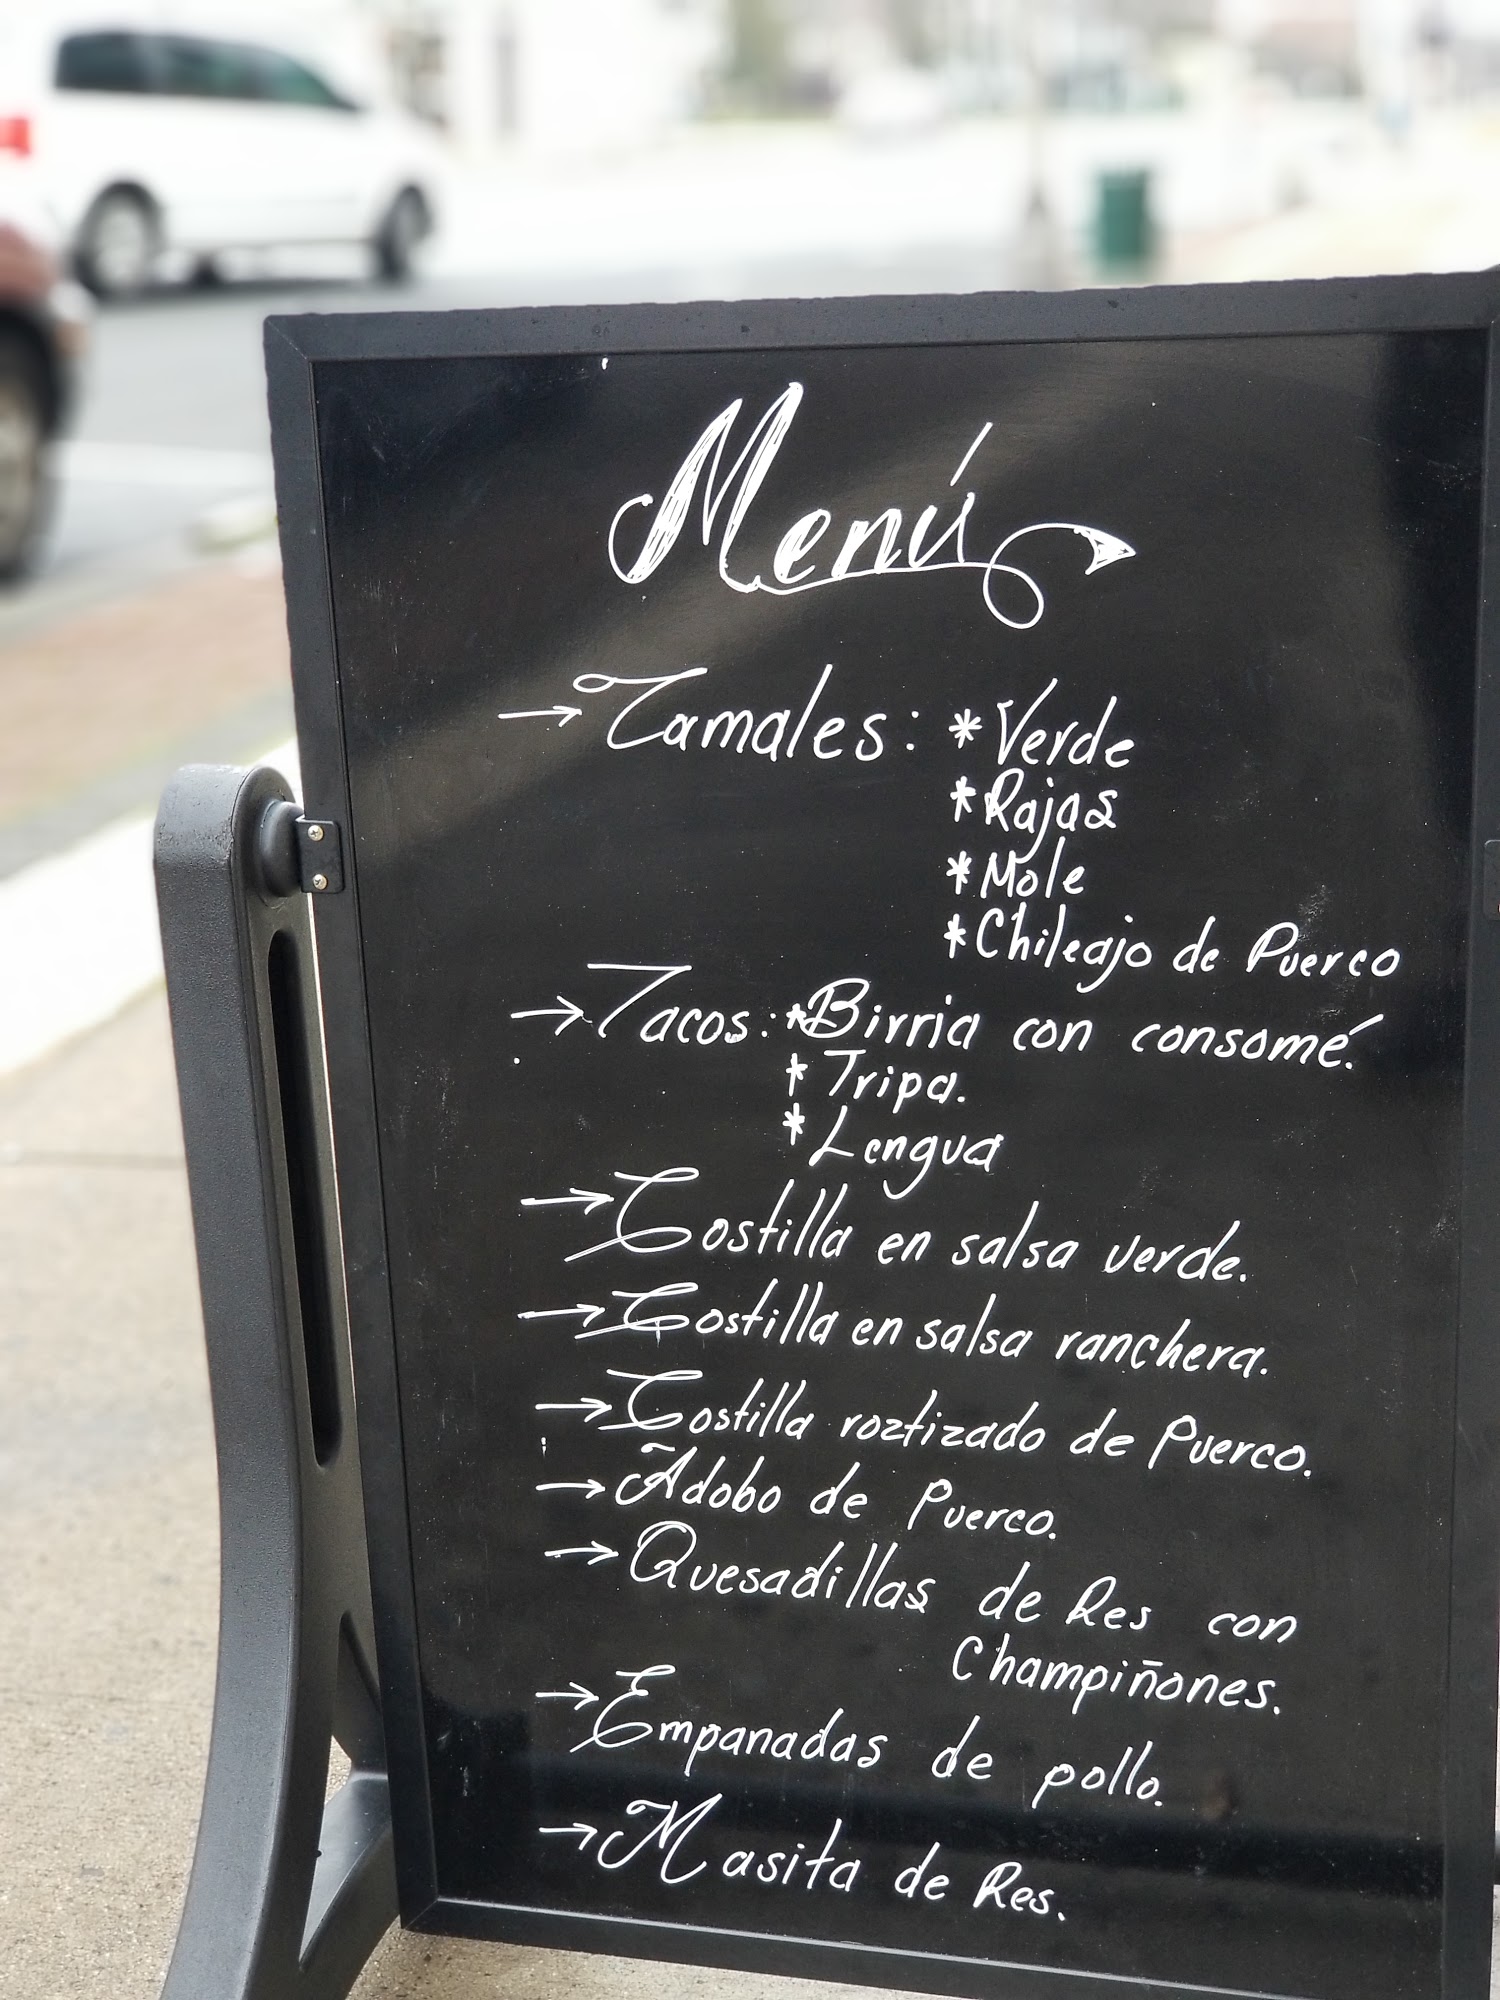 Menú
→Tamales: *Verde
*Rajas
*Mole
*Chileajo de Puerco
→Tacos: *Birria con consomé.
*Tripa.
*Lengua
→Costilla en salsa verde.
→Costilla en salsa ranchera.
→Costilla roztizado de Puerco.
→Adobo de Puerco.
→Quesadillas de Res con
Champiñones.
→Empanadas de pollo.
→Masita de Res.